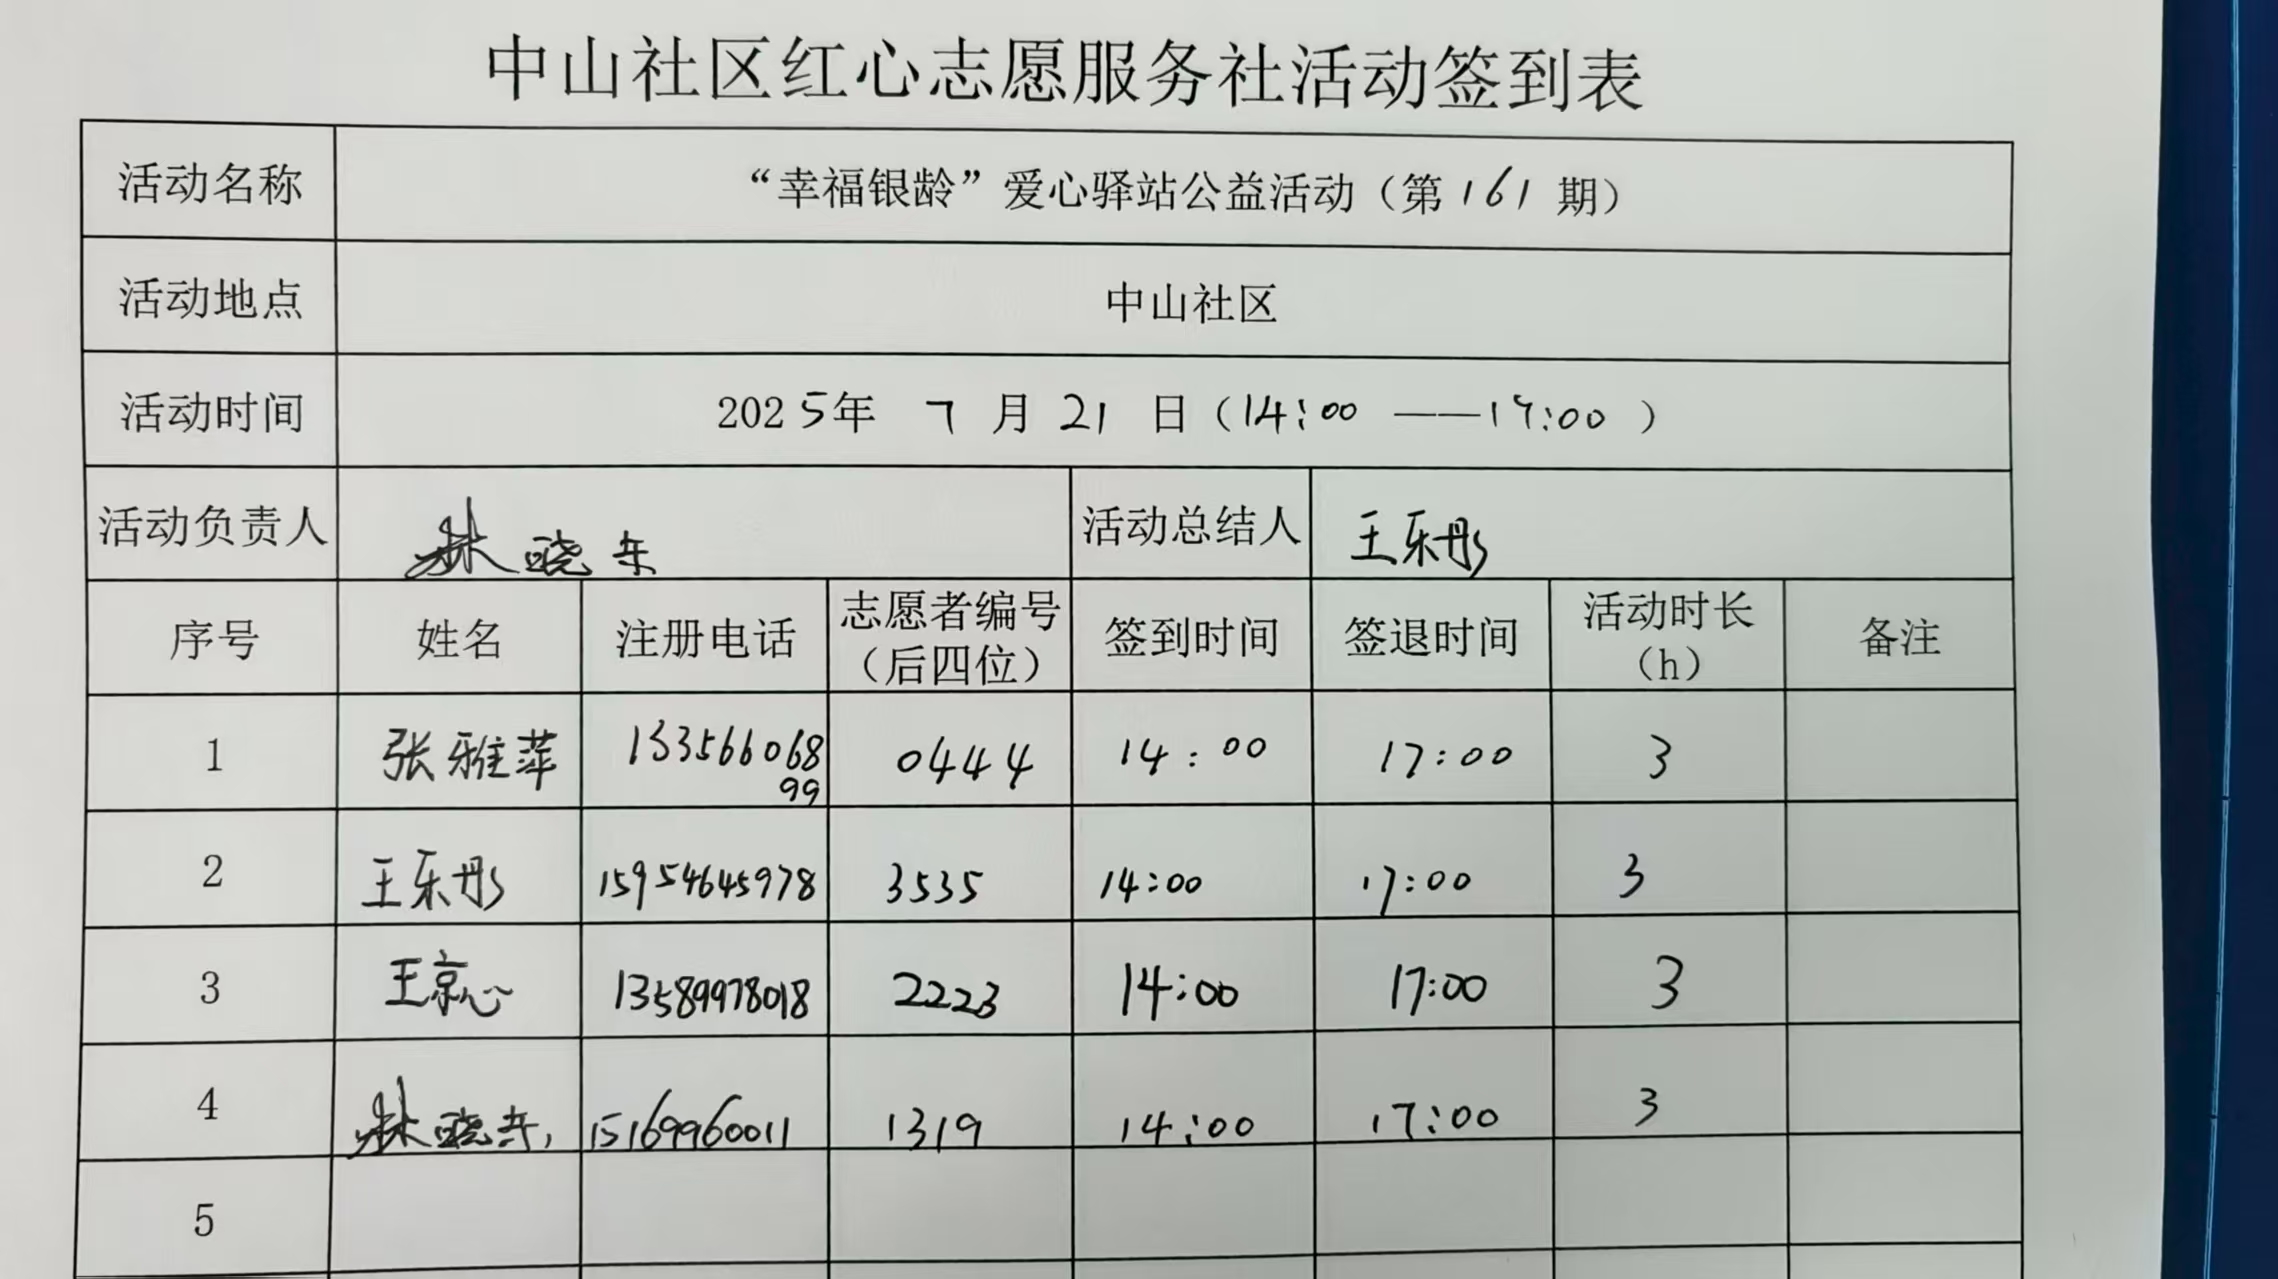 中山社区红心志愿服务社活动签到表
活动名称 “幸福银龄”爱心驿站公益活动（第161期）
活动地点 中山社区
活动时间 2025年 7月21日（14:00——17:00）
活动负责人 林晓东 活动总结人 王乐彤
序号 姓名 注册电话 志愿者编号（后四位） 签到时间 签退时间 活动时长（h） 备注
1 张雅萍 13356606899 0444 14:00 17:00 3
2 王乐彤 15954645978 3535 14:00 17:00 3
3 王京心 13589978018 2223 14:00 17:00 3
4 林晓东 15169960011 1319 14:00 17:00 3
5